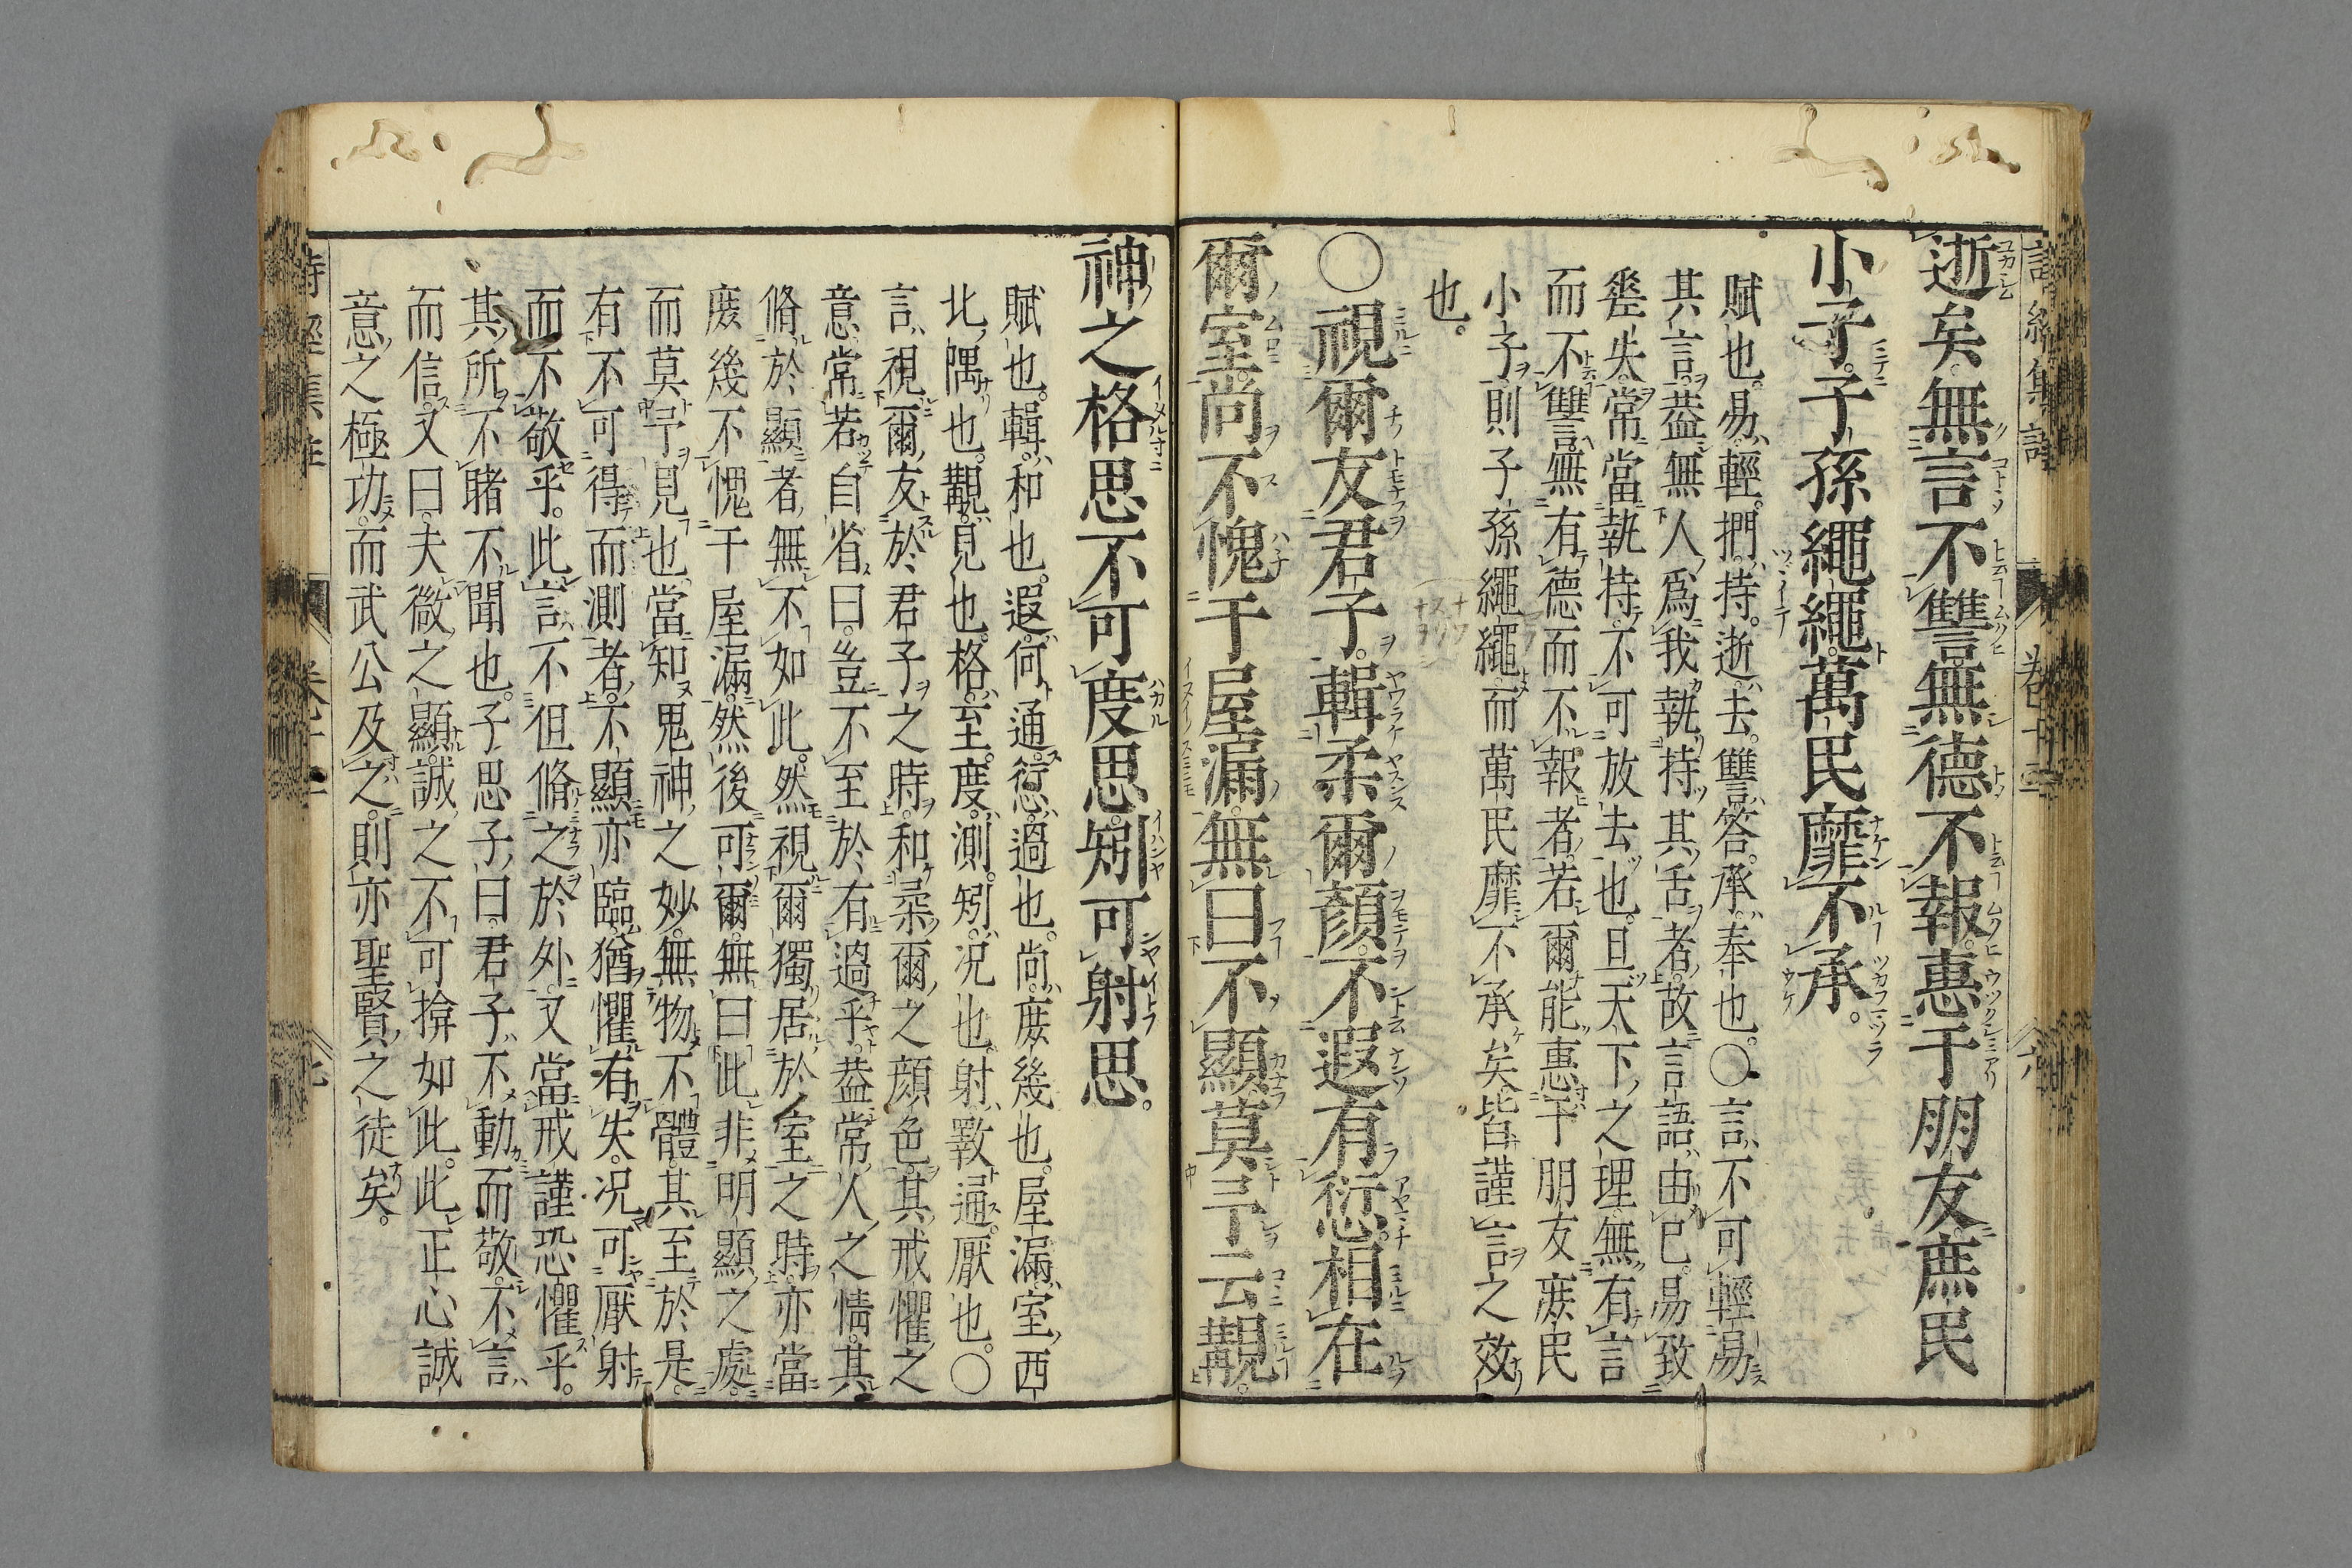 逝矣無言不讐無德不報惠于朋友庶民
小子子孫繩繩萬民靡不承
賦也易輕捫持逝去讐答承奉也○言不可輕易
其言葢無人爲我執持其舌者故言語由巳易致
差失常當執持不可放去也且天下之理無有言
而不讐無有德而不報者若爾能惠于朋友庶民
小子則子孫繩繩而萬民靡不承矣皆謹言之效
也
○視爾友君子輯柔爾顏不遐有愆相在
爾室尚不愧于屋漏無曰不顯莫予云覯
神之格思不可度思矧可射思
賦也輯和也遐何通愆過也尚庶幾也屋漏室西
北隅也覯見也格至度測矧况也射斁通厭也○
言視爾友於君子之時和柔爾之顏色其戒懼之
意常若自省曰豈不至於有過乎葢常人之情其
脩於顯者無不如此然視爾獨居於室之時亦當
庶幾不愧于屋漏然後可爾無曰此非明顯之處
而莫予見也當知鬼神之妙無物不體其至於是
有不可得而測者不顯亦臨猶懼有失况可厭射
而不敬乎此言不但脩之於外又當戒謹恐懼乎
其所不睹不聞也子思子曰君子不動而敬不言
而信又曰夫微之顯誠之不可揜如此此正心誠
意之極功而武公及之則亦聖賢之徒矣